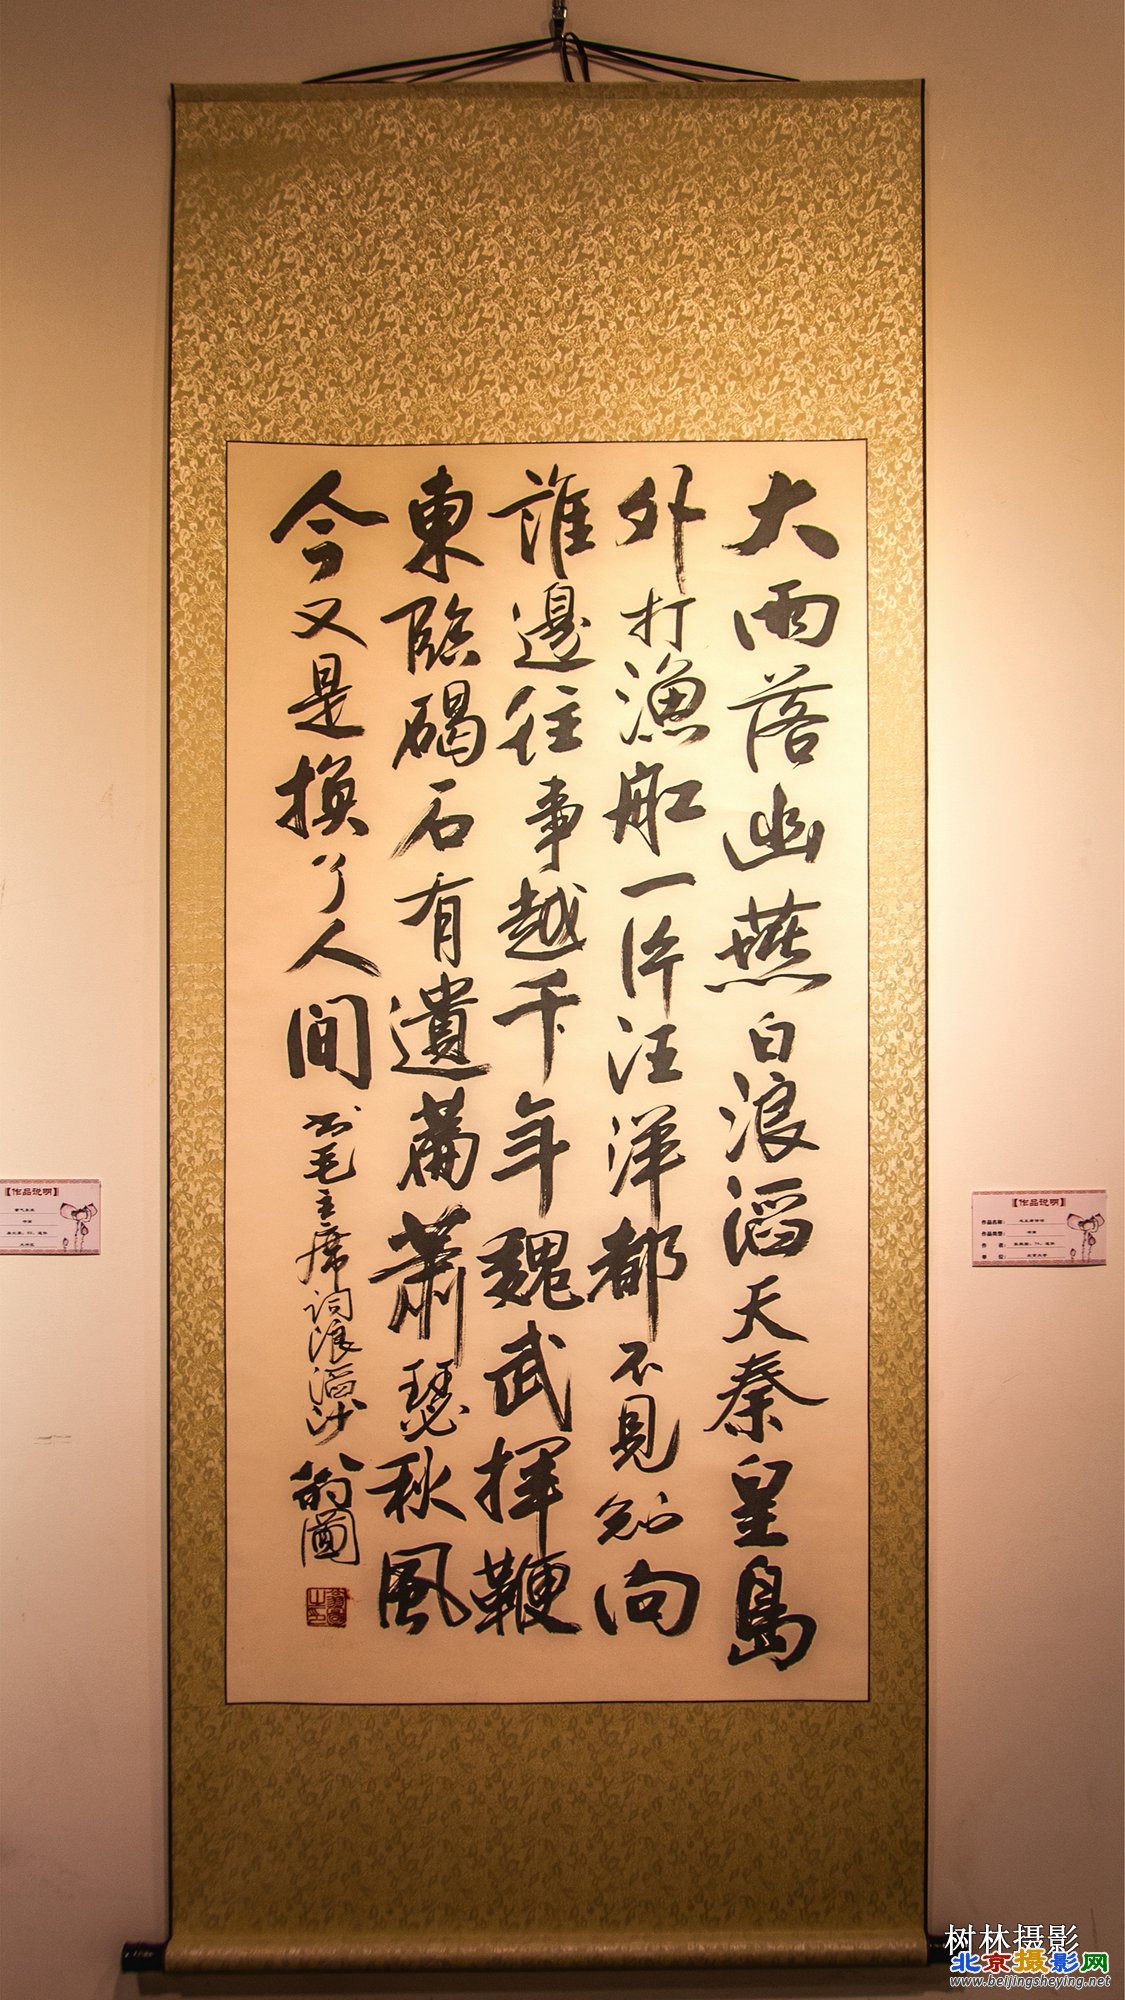 大雨落幽燕白浪滔天秦皇島
外打漁船一片汪洋都不見知向
誰邊往事越千年魏武揮鞭
東臨碣石有遺篇蕭瑟秋風
今又是換了人間
书毛主席词浪滔沙
【作品说明】
【作品说明】
作品名称：
作品类型：
作 者：
单 位：
树林摄影
北京摄影网
www.beijingsheying.net